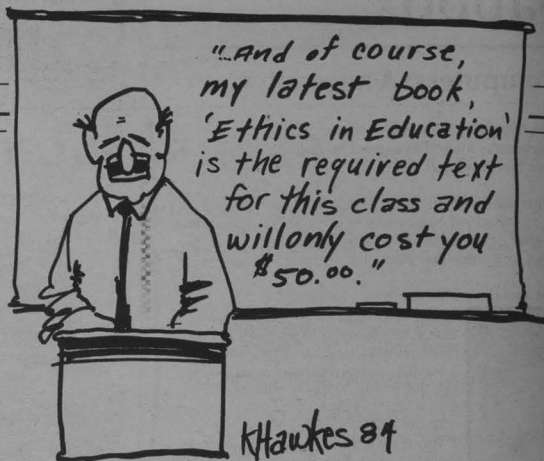 "...And of course,
my latest book,
'Ethics in Education'
is the required text
for this class and
will only cost you
$50.00."
KHawkes 84